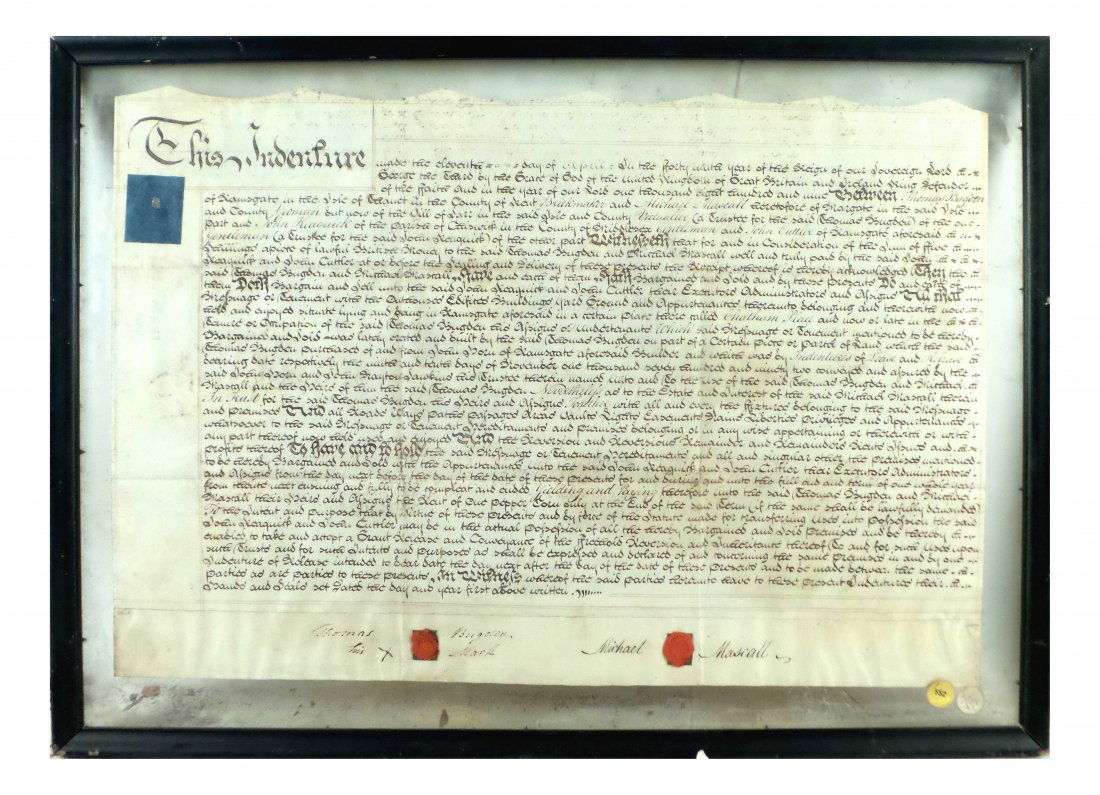 This Indenture
made the eleventh day of April In the forty ninth year of the Reign of our Sovereign Lord
George the Third by the Grace of God of the United Kingdom of Great Britain and Ireland King Defender
of the faith And in the year of our Lord one thousand eight hundred and nine Between Thomas Bugden
of Ramsgate in the Isle of Thanet in the County of Kent and Michael Mascall heretofore of Margate in the said Isle
and County Yeoman but now of the in the said Isle and County (a Trustee for the said Thomas Bugden) of the one
part and John of the Parish of in the County of Middlesex Gentleman and John Cuttler of Ramsgate aforesaid
Gentleman (a Trustee for the said John ) of the other part Witnesseth that for and in Consideration of the Sum of five
Shillings apiece of lawful British Money to the said Thomas Bugden and Michael Mascall well and truly paid by the said John
and John Cuttler at or before the Sealing and Delivery of these Presents the Receipt whereof is hereby acknowledged They the
said Thomas Bugden and Michael Mascall Have and each of them Hath Bargained and Sold and by these Presents Do and each of
them Doth Bargain and Sell unto the said John and John Cuttler their Executors Administrators and Assigns All that
Messuage or Tenement with the Outhouses Edifices Buildings Yard Ground and Appurtenances thereunto belonging and therewith now
held and enjoyed situate lying and being in Ramsgate aforesaid in a certain place there called Chatham and now or late in the
Tenure or Occupation of the said Thomas Bugden his Assigns or Undertenants Which said Messuage or Tenement mentioned to be hereby
Bargained and Sold was lately erected and built by the said Thomas Bugden on part of a Certain piece or Parcel of Land which the said
Thomas Bugden purchased of and from John of Ramsgate aforesaid Builder and which was by Indentures of Lease and Release
bearing date respectively the ninth and tenth days of November one thousand seven hundred and ninety two conveyed and assured by the
said John and John his Trustee therein named unto and To the use of the said Thomas Bugden and Michael
Mascall and the Heirs of him the said Thomas Bugden Nevertheless as to the Estate and Interest of the said Michael Mascall therein
In Trust for the said Thomas Bugden his Heirs and Assigns Together with all and every the fixtures belonging to the said Messuage
and Premises And all Roads Ways Paths Passages Areas Vaults Rights Easements Liberties Privileges and Appurtenances
whatsoever to the said Messuage or Tenement Hereditaments and premises belonging or in any wise appertaining or therewith or with
any part thereof now held used and enjoyed And the Reversion and Reversions Remainder and Remainders Rents Issues and
profits thereof To have and to hold the said Messuage or Tenement Hereditaments and all and singular other the premises mentioned
to be hereby Bargained and Sold with the Appurtenances unto the said John and John Cuttler their Executors Administrators
and Assigns from the day next before the day of the date of these presents for and during and unto the full end and term of one whole year
from thence next ensuing and fully to be compleat and ended Yielding and Paying therefore unto the said Thomas Bugden and Michael
Mascall their Heirs and Assigns the Rent of One Pepper Corn only at the End of the said Term (if the same shall be lawfully demanded)
To the Intent and purpose that by Virtue of these Presents and by force of the Statute made for transferring Uses into Possession the said
John and John Cuttler may be in the actual Possession of all the hereby Bargained and Sold Premises and be thereby
enabled to take and accept a Grant Release and Conveyance of the Freehold Reversion and Inheritance thereof To and for such Uses upon
such Trusts and for such Intents and purposes as shall be expressed and declared of and concerning the same Premises in and by one
Indenture of Release intended to bear date the day next after the day of the date of these Presents and to be made between the same
parties as are parties to these presents In Witness whereof the said parties hereunto have to these present Indentures their
Hands and Seals set Dated the day and year first above written.
Thomas Bugden
his X Mark
Michael Mascall
552